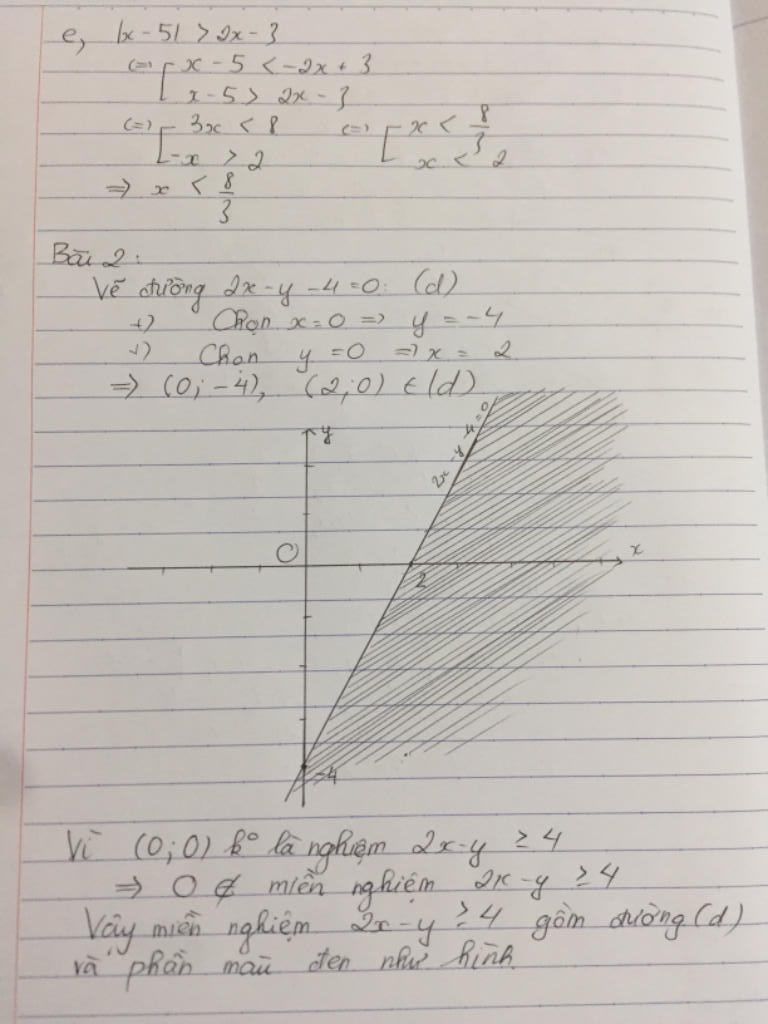 e, |x - 5| > 2x - 3
<=> [ x - 5 < -2x + 3
x - 5 > 2x - 3
<=> [ 3x < 8 <=> [ x < 8/3
-x > 2 x < 2
=> x < 8/3
Bài 2:
Vẽ đường 2x - y - 4 = 0: (d)
+) Chọn x = 0 => y = -4
+) Chọn y = 0 => x = 2
=> (0; -4), (2; 0) ∈ (d)
2x - y - 4 = 0
y
O
x
2
-4
Vì (0; 0) k° là nghiệm 2x - y ≥ 4
=> O ∉ miền nghiệm 2x - y ≥ 4
Vậy miền nghiệm 2x - y ≥ 4 gồm đường (d)
và phần màu đen như hình